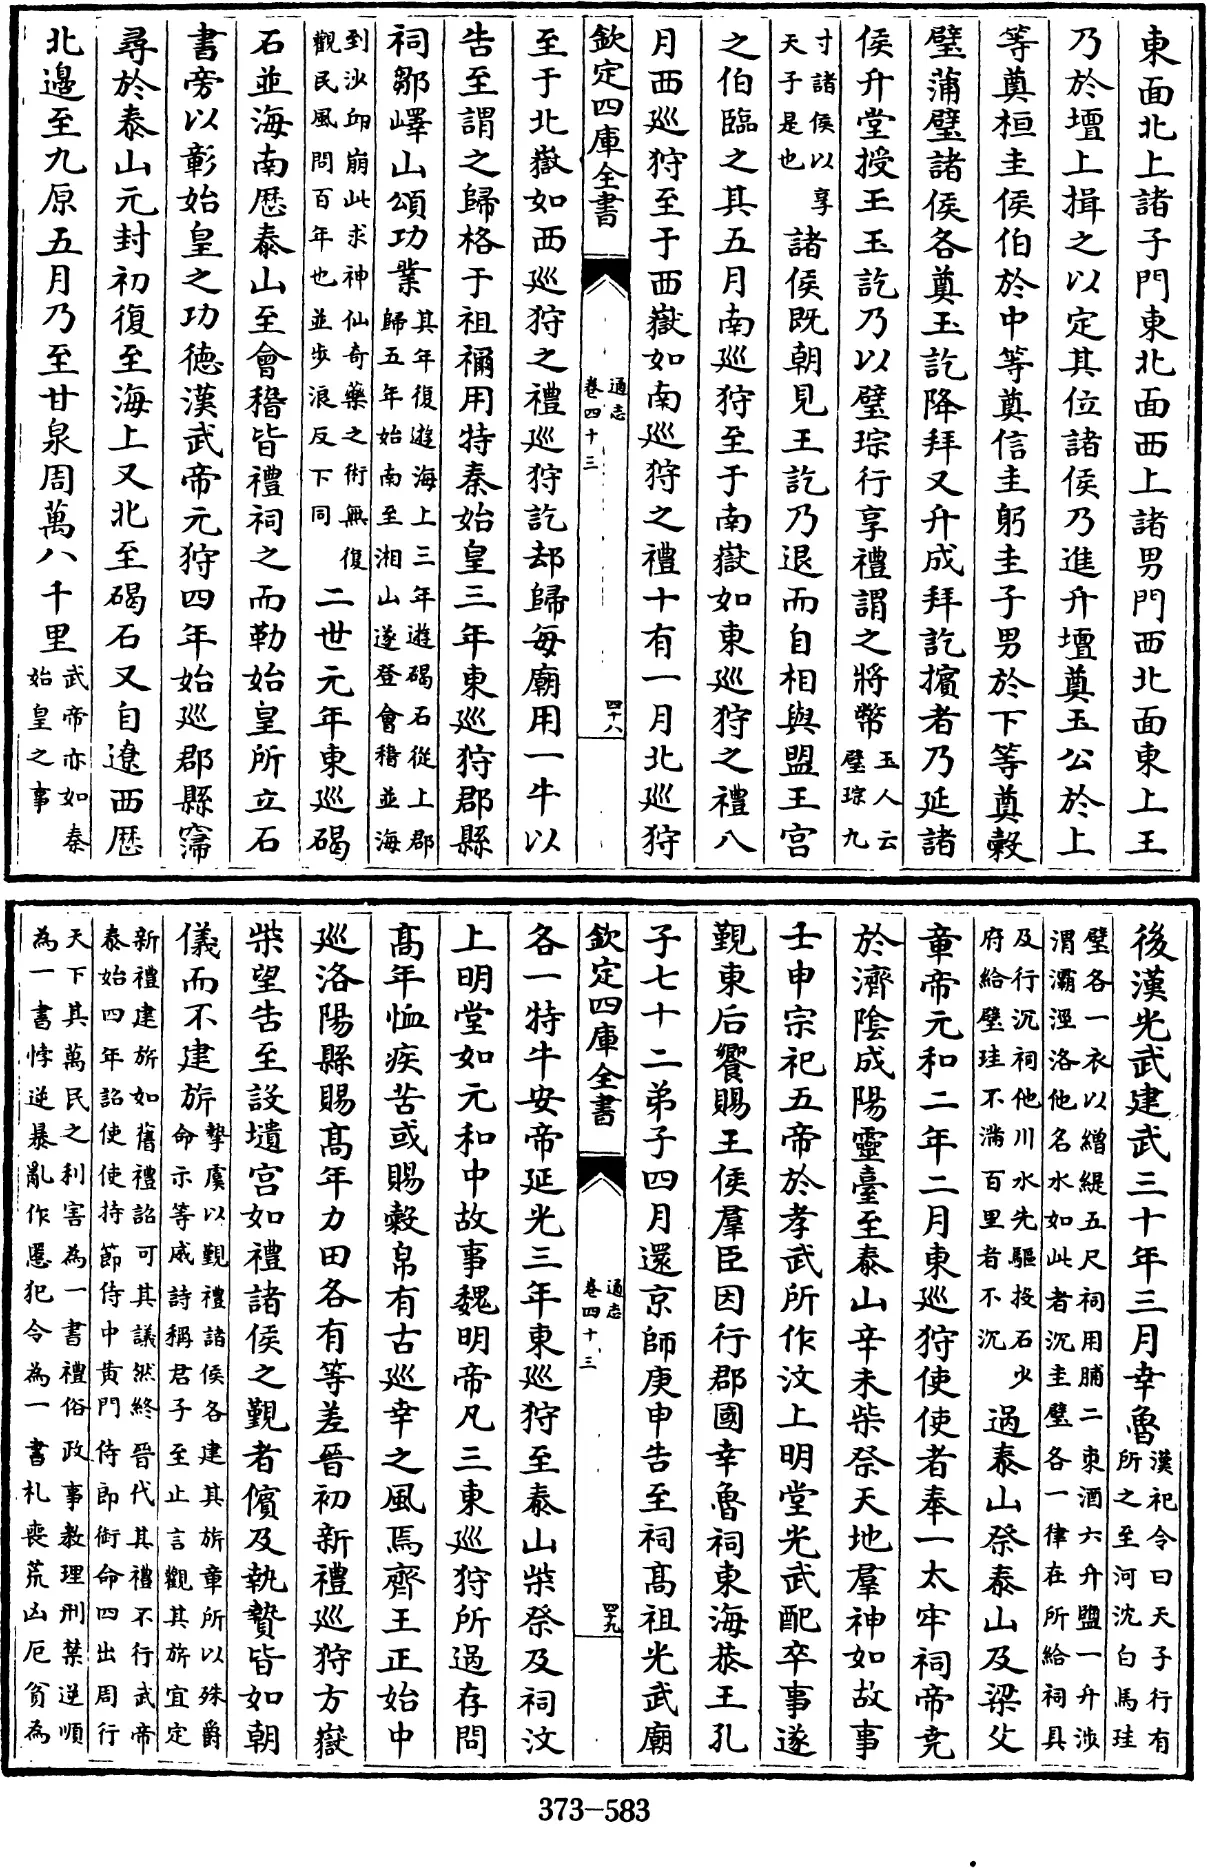 東面北上諸子門東北面西上諸男門西北面東上王
乃於壇上揖之以定其位諸侯乃進升壇奠玉公於上
等奠桓圭侯伯於中等奠信圭躬圭子男於下等奠穀
璧蒲璧諸侯各奠玉訖降拜又升成拜訖擯者乃延諸
侯升堂授王玉訖乃以璧琮行享禮謂之將幣玉人云璧琮九
寸諸侯以享天子是也諸侯既朝見王訖乃退而自相與盟王宫
之伯臨之其五月南巡狩至于南嶽如東巡狩之禮八
月西巡狩至于西嶽如南巡狩之禮十有一月北巡狩
欽定四庫全書
通志卷四十三
四十八
至于北嶽如西巡狩之禮巡狩訖却歸每廟用一牛以
告至謂之歸格于祖禰用特秦始皇三年東巡狩郡縣
祠鄒嶧山頌功業其年復遊海上三年遊碣石從上郡歸五年始南至湘山遂登會稽並海
到沙邱崩此求神仙奇藥之術無復觀民風問百年也並步浪反下同二世元年東巡碣
石並海南歴泰山至會稽皆禮祠之而勒始皇所立石
書旁以彰始皇之功德漢武帝元狩四年始巡郡縣㝷
尋於泰山元封初復至海上又北至碣石又自遼西歴
北邉至九原五月乃至甘泉周萬八千里武帝亦如秦始皇之事
後漢光武建武三十年三月幸魯漢祀令曰天子行有所之至河沈白馬珪
璧各一衣以繒緹五尺祠用脯二束酒六升鹽一升涉渭灞涇洛他名水如此者沉圭璧各一律在所給祠具
及行沉祠他川水先驅投石少府給璧珪不滿百里者不沉過泰山祭泰山及梁父
章帝元和二年二月東巡狩使使者奉一太牢祠帝堯
於濟陰成陽靈臺至泰山辛未柴祭天地羣神如故事
壬申宗祀五帝於孝武所作汶上明堂光武配卒事遂
覲東后饗賜王侯羣臣因行郡國幸魯祠東海恭王孔
子七十二弟子四月還京師庚申告至祠髙祖光武廟
欽定四庫全書
通志卷四十三
四十九
各一特牛安帝延光三年東巡狩至泰山柴祭及祠汶
上明堂如元和中故事魏明帝凡三東巡狩所過存問
髙年恤疾苦或賜穀帛有古巡幸之風焉齊王正始中
巡洛陽縣賜髙年力田各有等差晉初新禮巡狩方嶽
柴望告至設壝宫如禮諸侯之覲者儐及執贄皆如朝
儀而不建旂摯虞以覲禮諸侯各建其旂章所以殊爵命示等威詩稱君子至止言觀其旂宜定
新禮建旂如舊禮詔可其議然終晉代其禮不行武帝泰始四年詔使使持節侍中黄門侍郎銜命四出周行
天下其萬民之利害為一書禮俗政事教理刑禁逆順為一書悖逆暴亂作慝犯令為一書札喪荒凶厄貧為
373-583